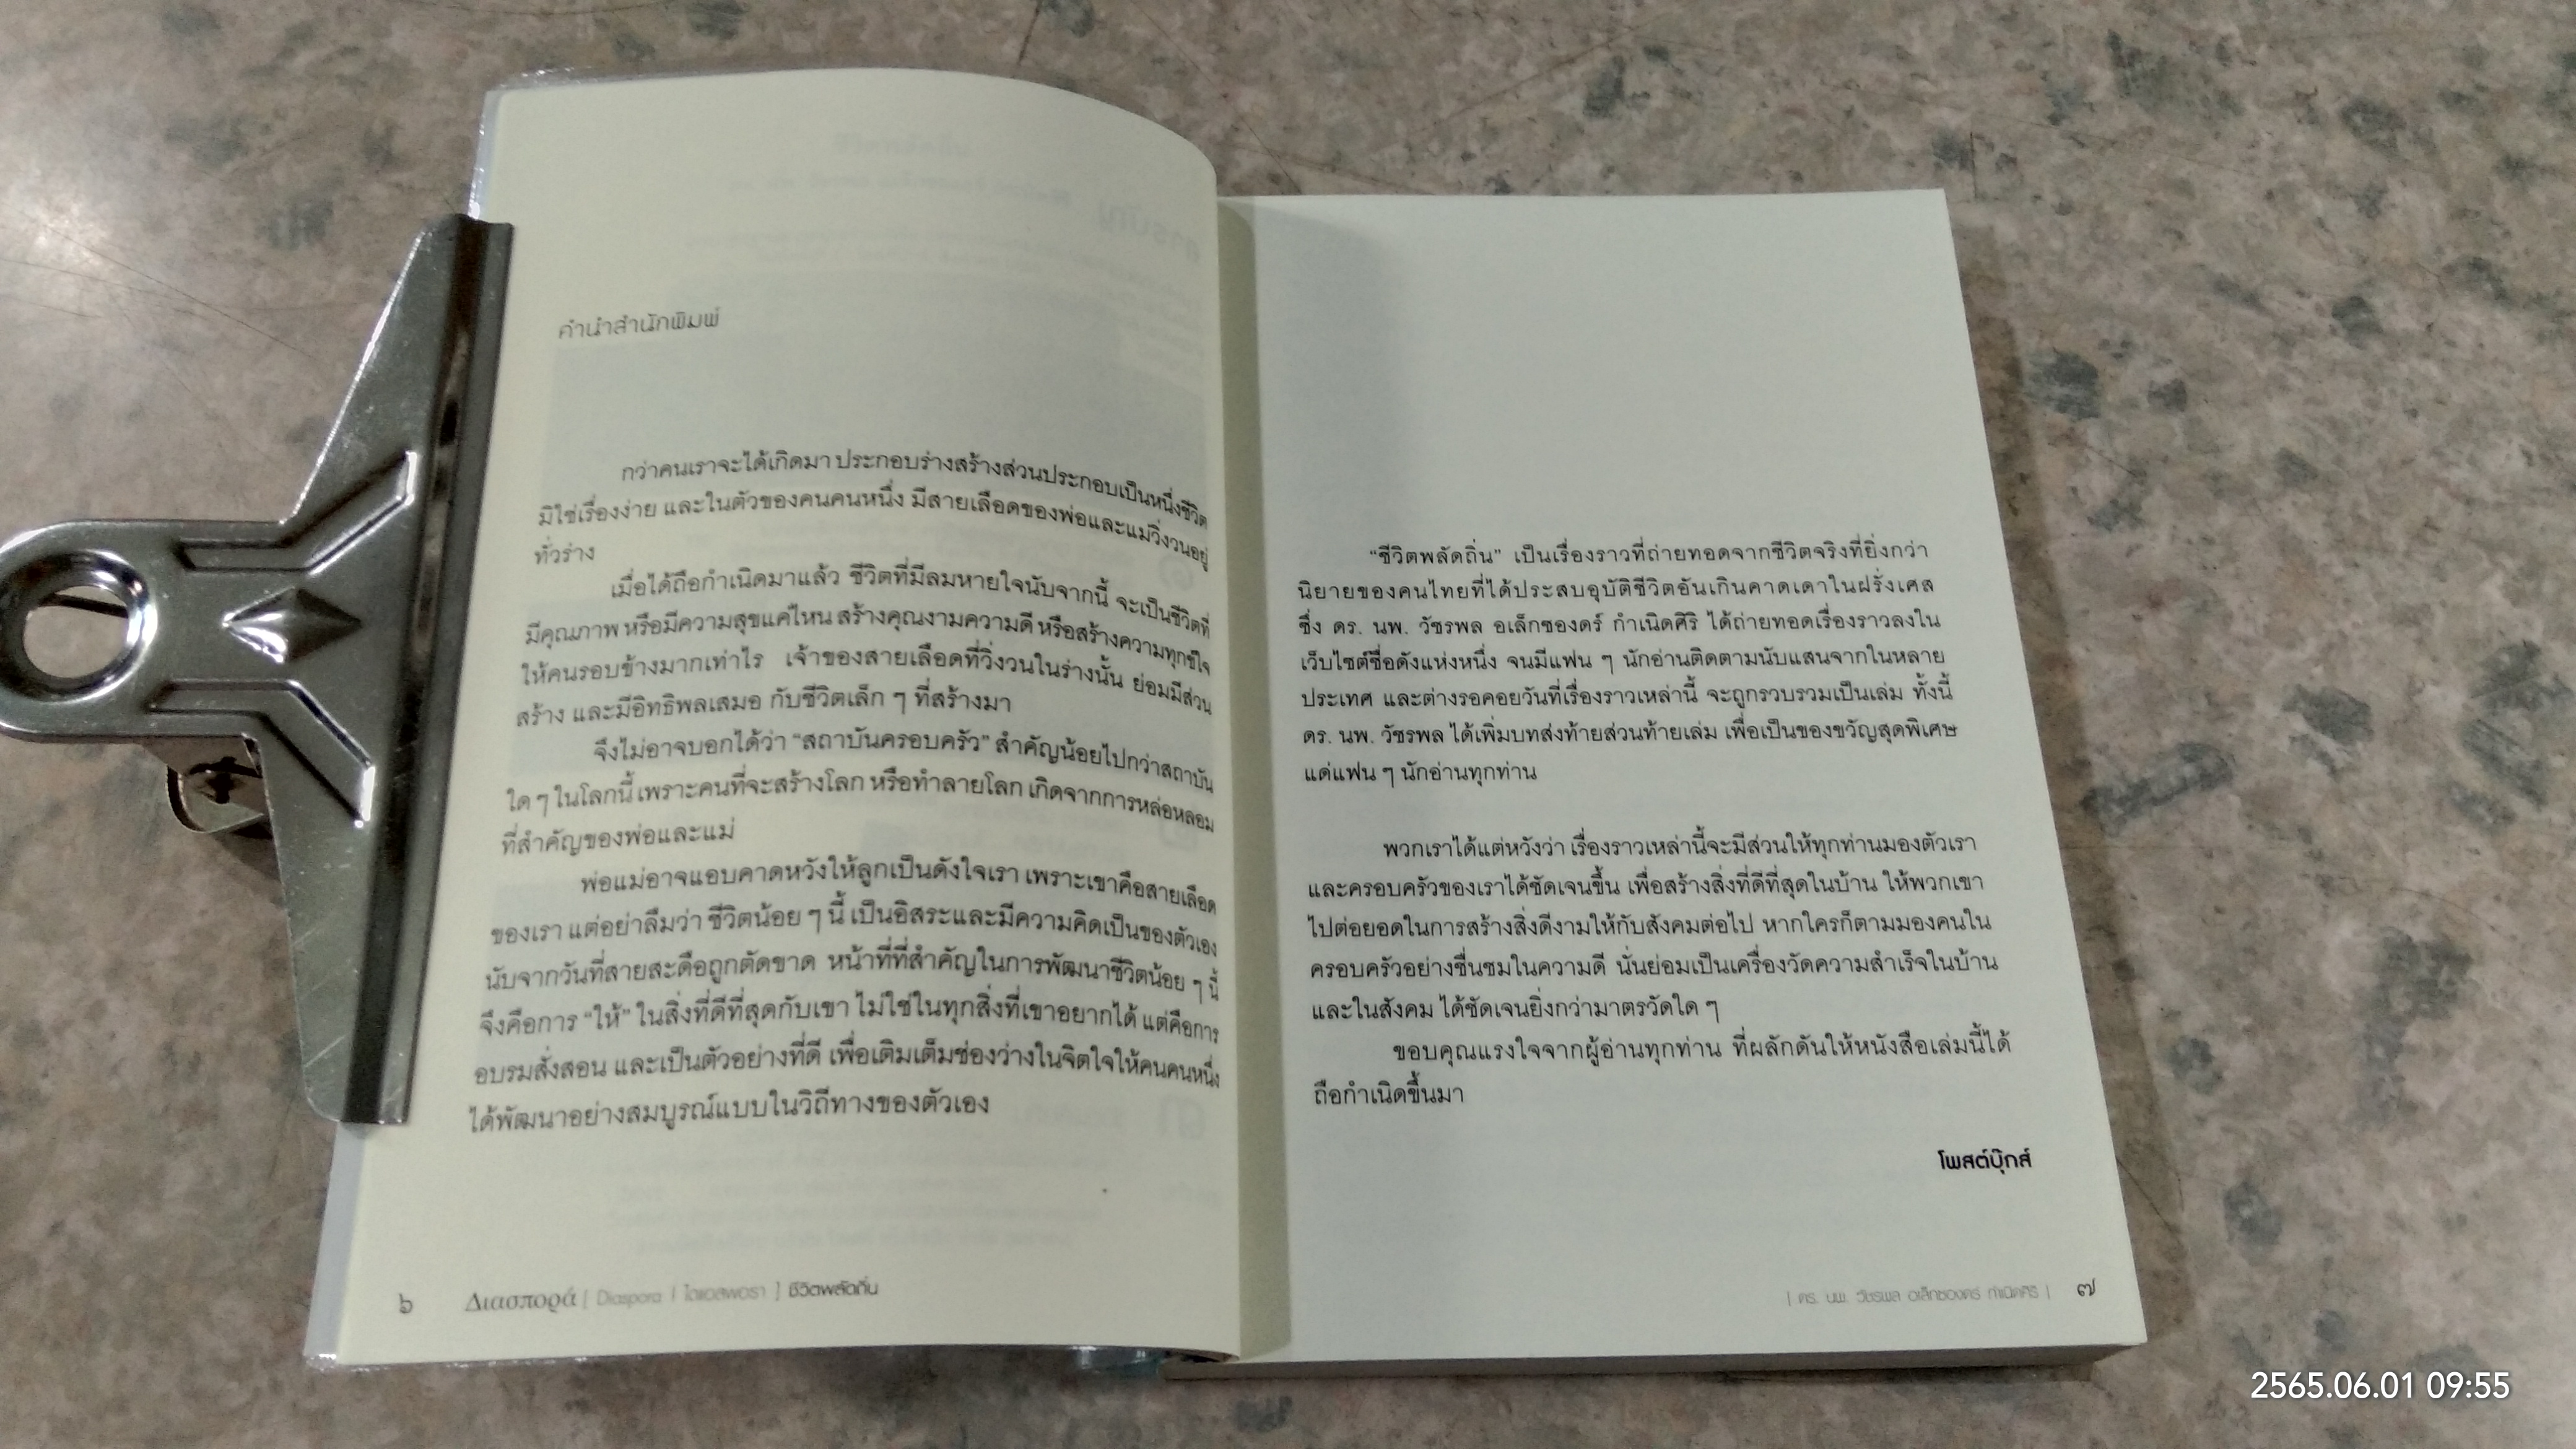 คำนำสำนักพิมพ์
กว่าคนเราจะได้เกิดมา ประกอบร่างสร้างส่วนประกอบเป็นหนึ่งชีวิต
มิใช่เรื่องง่าย และในตัวของคนคนหนึ่ง มีสายเลือดของพ่อและแม่วิ่งวนอยู่
ทั่วร่าง
เมื่อได้ถือกำเนิดมาแล้ว ชีวิตที่มีลมหายใจนับจากนี้ จะเป็นชีวิตที่
มีคุณภาพ หรือมีความสุขแค่ไหน สร้างคุณงามความดี หรือสร้างความทุกข์ใจ
ให้คนรอบข้างมากเท่าไร เจ้าของสายเลือดที่วิ่งวนในร่างนั้น ย่อมมีส่วน
สร้าง และมีอิทธิพลเสมอ กับชีวิตเล็ก ๆ ที่สร้างมา
จึงไม่อาจบอกได้ว่า “สถาบันครอบครัว” สำคัญน้อยไปกว่าสถาบัน
ใด ๆ ในโลกนี้ เพราะคนที่จะสร้างโลก หรือทำลายโลก เกิดจากการหล่อหลอม
ที่สำคัญของพ่อและแม่
พ่อแม่อาจแอบคาดหวังให้ลูกเป็นดังใจเรา เพราะเขาคือสายเลือด
ของเรา แต่อย่าลืมว่า ชีวิตน้อย ๆ นี้ เป็นอิสระและมีความคิดเป็นของตัวเอง
นับจากวันที่สายสะดือถูกตัดขาด หน้าที่ที่สำคัญในการพัฒนาชีวิตน้อย ๆ นี้
จึงคือการ “ให้” ในสิ่งที่ดีที่สุดกับเขา ไม่ใช่ในทุกสิ่งที่เขาอยากได้ แต่คือการ
อบรมสั่งสอน และเป็นตัวอย่างที่ดี เพื่อเติมเต็มช่องว่างในจิตใจให้คนคนหนึ่ง
ได้พัฒนาอย่างสมบูรณ์แบบในวิถีทางของตัวเอง
๖ Διασπορά [ Diaspora | ไดแอสพอรา ] ชีวิตพลัดถิ่น
“ชีวิตพลัดถิ่น” เป็นเรื่องราวที่ถ่ายทอดจากชีวิตจริงที่ยิ่งกว่า
นิยายของคนไทยที่ได้ประสบอุบัติชีวิตอันเกินคาดเดาในฝรั่งเศส
ซึ่ง ดร. นพ. วัชรพล อเล็กซองดร์ กำเนิดศิริ ได้ถ่ายทอดเรื่องราวลงใน
เว็บไซต์ชื่อดังแห่งหนึ่ง จนมีแฟน ๆ นักอ่านติดตามนับแสนจากในหลาย
ประเทศ และต่างรอคอยวันที่เรื่องราวเหล่านี้ จะถูกรวบรวมเป็นเล่ม ทั้งนี้
ดร. นพ. วัชรพล ได้เพิ่มบทส่งท้ายส่วนท้ายเล่ม เพื่อเป็นของขวัญสุดพิเศษ
แด่แฟน ๆ นักอ่านทุกท่าน
พวกเราได้แต่หวังว่า เรื่องราวเหล่านี้จะมีส่วนให้ทุกท่านมองตัวเรา
และครอบครัวของเราได้ชัดเจนขึ้น เพื่อสร้างสิ่งที่ดีที่สุดในบ้าน ให้พวกเขา
ไปต่อยอดในการสร้างสิ่งดีงามให้กับสังคมต่อไป หากใครก็ตามมองคนใน
ครอบครัวอย่างชื่นชมในความดี นั่นย่อมเป็นเครื่องวัดความสำเร็จในบ้าน
และในสังคม ได้ชัดเจนยิ่งกว่ามาตรวัดใด ๆ
ขอบคุณแรงใจจากผู้อ่านทุกท่าน ที่ผลักดันให้หนังสือเล่มนี้ได้
ถือกำเนิดขึ้นมา
โพสต์บุ๊กส์
| ดร. นพ. วัชรพล อเล็กซองดร์ กำเนิดศิริ | ๗
2565.06.01 09:55